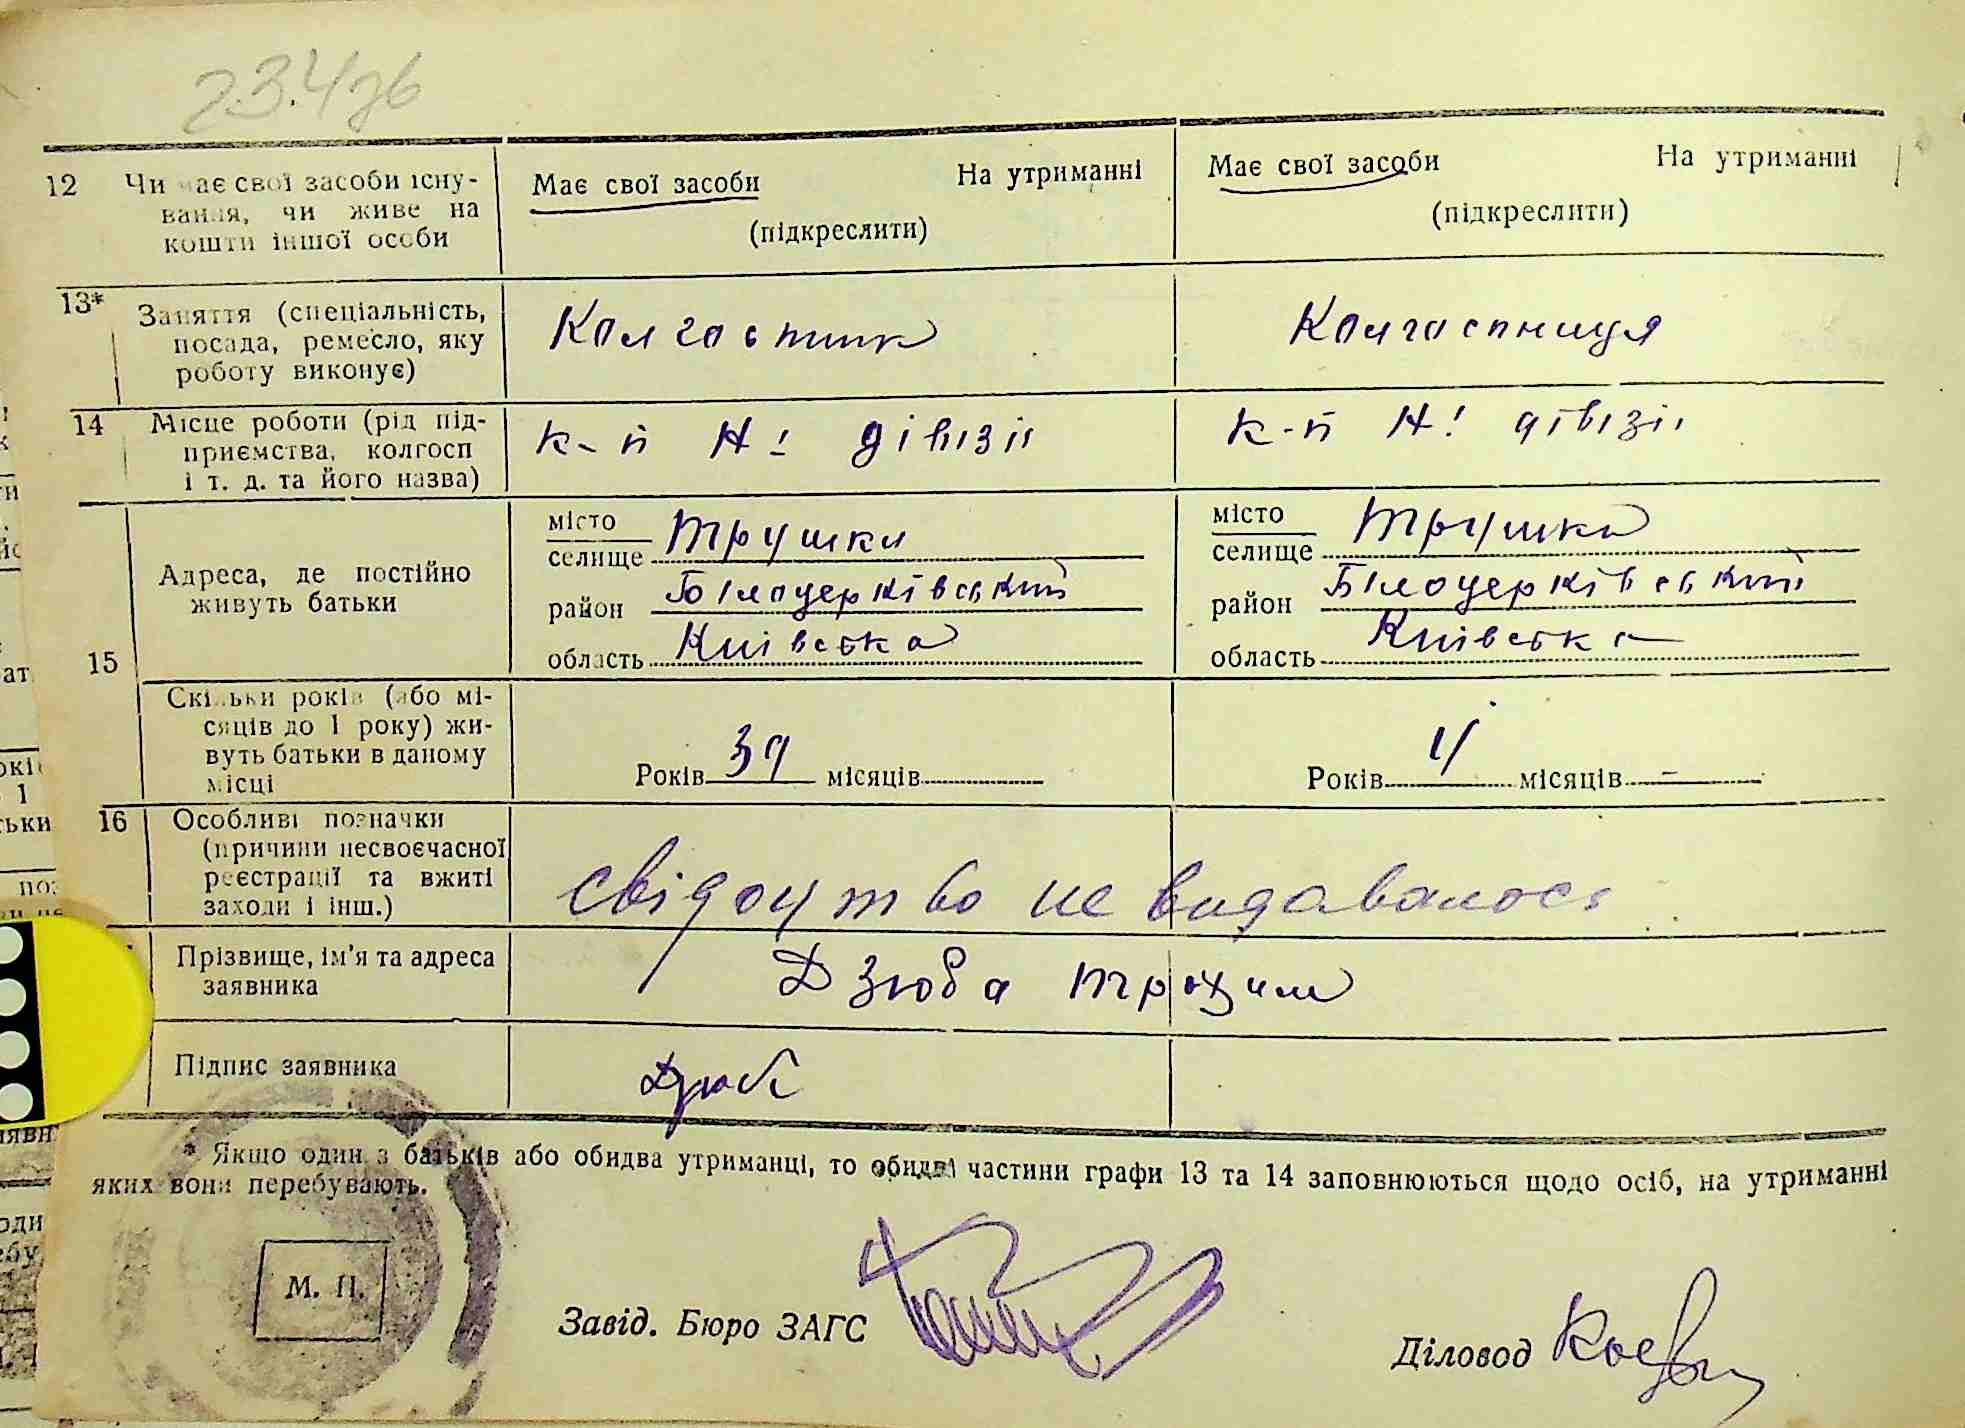 23.476
12 Чи має свої засоби існу- Має свої засоби На утриманні Має свої засоби На утриманні
вання, чи живе на (підкреслити) (підкреслити)
кошти іншої особи
13* Заняття (спеціальність, Колгоспник Колгоспниця
посада, ремесло, яку
роботу виконує)
14 Місце роботи (рід під- к-п ІІ! дівізіі к-п ІІ! дівізіі
приємства, колгосп
і т. д. та його назва)
15 Адреса, де постійно
живуть батьки
місто
селище Трушки
район Білоцерківський
область Київська
місто
селище Трушки
район Білоцерківський
область Київська
Скільки років (або мі-
сяців до 1 року) жи-
вуть батьки в даному
місці
Років 39 місяців
Років місяців -
16 Особливі позначки
(причини несвоєчасної
реєстрації та вжиті
заходи і інш.)
свідоцтво не видавалось
Прізвище, ім'я та адреса
заявника
Дзюба Трохим
Підпис заявника Дзюб
* Якщо один з батьків або обидва утриманці, то обидві частини графи 13 та 14 заповнюються щодо осіб, на утриманні
яких вони перебувають.
М. П.
Завід. Бюро ЗАГС
Діловод